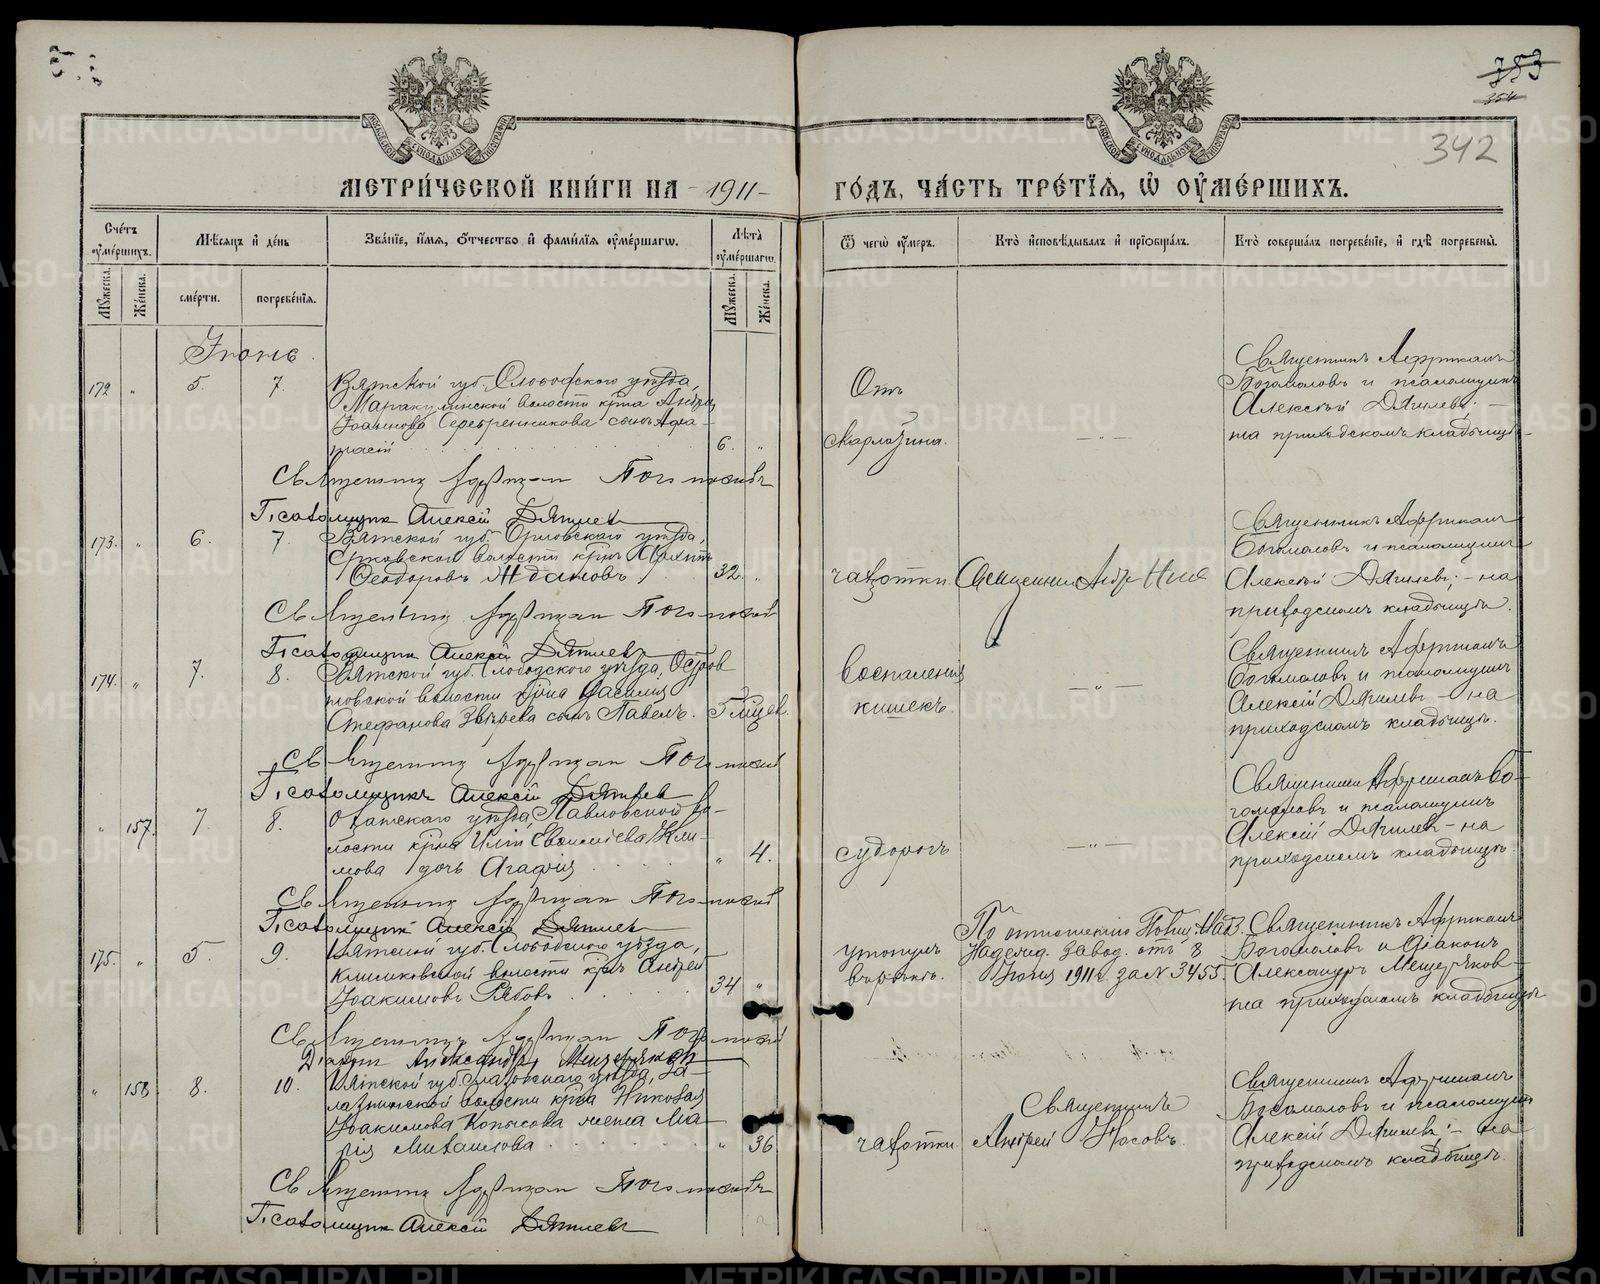 353
354
342
МЕТРИ́ЧЕСКОЙ КНИ́ГИ НА 1911 ГО́ДЪ, ЧА́СТЬ ТРЕ́ТЇѦ, Ѿ ОУ҆МЕ́РШИХЪ.
Сче́тъ оу҆ме́ршихъ.
Мѣ́сяцъ и҆ де́нь
Зва́нїе, и҆́мѧ, ѻ҆́тчество и҆ фами́лїѧ оу҆ме́ршагѡ.
Лѣ́та оу҆ме́ршагѡ.
Ѿ чегѡ̀ оу҆́меръ.
Кто̀ и҆сповѣ́дывалъ и҆ прїѡбща́лъ.
Кто̀ соверша́лъ погребе́нїе, и҆ гдѣ̀ погребены̀.
Мꙋ́жеска.
Же́нска.
сме́рти.
погребе́нїѧ.
Мꙋ́жеска.
Же́нска.
Іюнь.
172 " 5. 7.
Вятской губ. Слободского уѣзда,
Маракулинской волости кр-на Андрея
Іоаннова Серебренникова сынъ Афа-
насій
6. "
Отъ
скарлатина.
— " —
Священникъ Африканъ
Богомоловъ и псаломщикъ
Алексѣй Дягилевъ; —
на приходскомъ кладбищѣ.
Священникъ Африкан Богомоловъ
Псаломщикъ Алексій Дягилевъ
173. " 6. 7.
Вятской губ. Орловскаго уѣзда,
волости кр-нъ
Ѳеодоровъ Ждановъ.
32. "
чахотки.
Священникъ
Священникъ Африканъ
Богомоловъ и псаломщикъ
Алексѣй Дягилевъ; — на
приходскомъ кладбищѣ.
Священникъ Африкан Богомоловъ
Псаломщикъ Алексій Дягилевъ
174. " 7. 8.
Вятской губ. Слободского уѣзда, Остров
новской волости кр-на Василія
Стефанова Звѣрева сынъ Павелъ.
5 мѣсяц.
воспаленія
кишекъ.
— " —
Священникъ Африканъ
Богомоловъ и псаломщикъ
Алексій Дягилевъ — на
приходскомъ кладбищѣ.
Священникъ Африкан Богомоловъ
Псаломщикъ Алексій Дягилев
" 157. 7. 8.
Оханскаго уѣзда Павловской во-
лости кр-на Иліи Евфиміева Кли-
мова дочь Агафія
" 4.
судорогъ
— " —
Священникъ Африканъ Бо-
гомоловъ и псаломщикъ
Алексій Дягилевъ — на
приходскомъ кладбищѣ.
Священникъ Африкан Богомоловъ
Псаломщикъ Алексій Дягилевъ
175. " 5. 9.
Вятской губ. Слободского уѣзда,
волости кр-нъ Андрей
Іоакимовъ Рябовъ
34 "
утонулъ
въ рѣкѣ.
По отношенію Полиц. Над.
Надежд. завод. отъ 8
Іюня 1911 г. за № 3455.
Священникъ Африканъ
Богомоловъ и діаконъ
Александръ Мещеряковъ —
на приходскомъ кладбищѣ
Священникъ Африкан Богомоловъ
Діаконъ Александръ Мещеряковъ
" 158 8. 10.
Вятской губ. Глазовскаго уѣзда, За-
лазнинской волости кр-на Николая
Іоакимова Копысова жена Ма-
рія Михаилова
" 36
чахотки
Священникъ
Андрей Носовъ.
Священникъ Африканъ
Богомоловъ и псаломщикъ
Алексій Дягилевъ; — на
приходскомъ кладбищѣ.
Священникъ Африкан Богомоловъ
Псаломщикъ Алексій Дягилевъ
METRIKI.GASO-URAL.RU